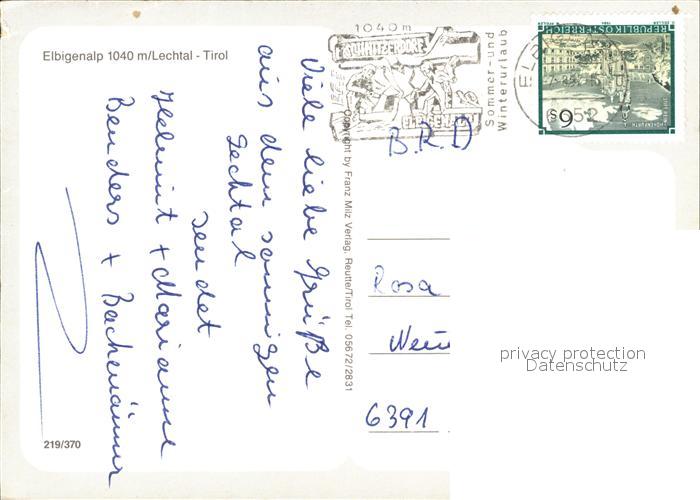 Elbigenalp 1040 m/Lechtal - Tirol
Viele liebe Grüße
aus dem sonnigen
Lechtal
sendet
Helmut + Marianne
Benders +
219/370
Copyright by Franz Milz Verlag, Reutte/Tirol Tel. 05672/2831
1040m
SCHNITZERDORF
ELBIGENALP
Sommer- und
Winterurlaub
REPUBLIK ÖSTERREICH
S 6
B.R.D
Rosa
6391
privacy protection
Datenschutz